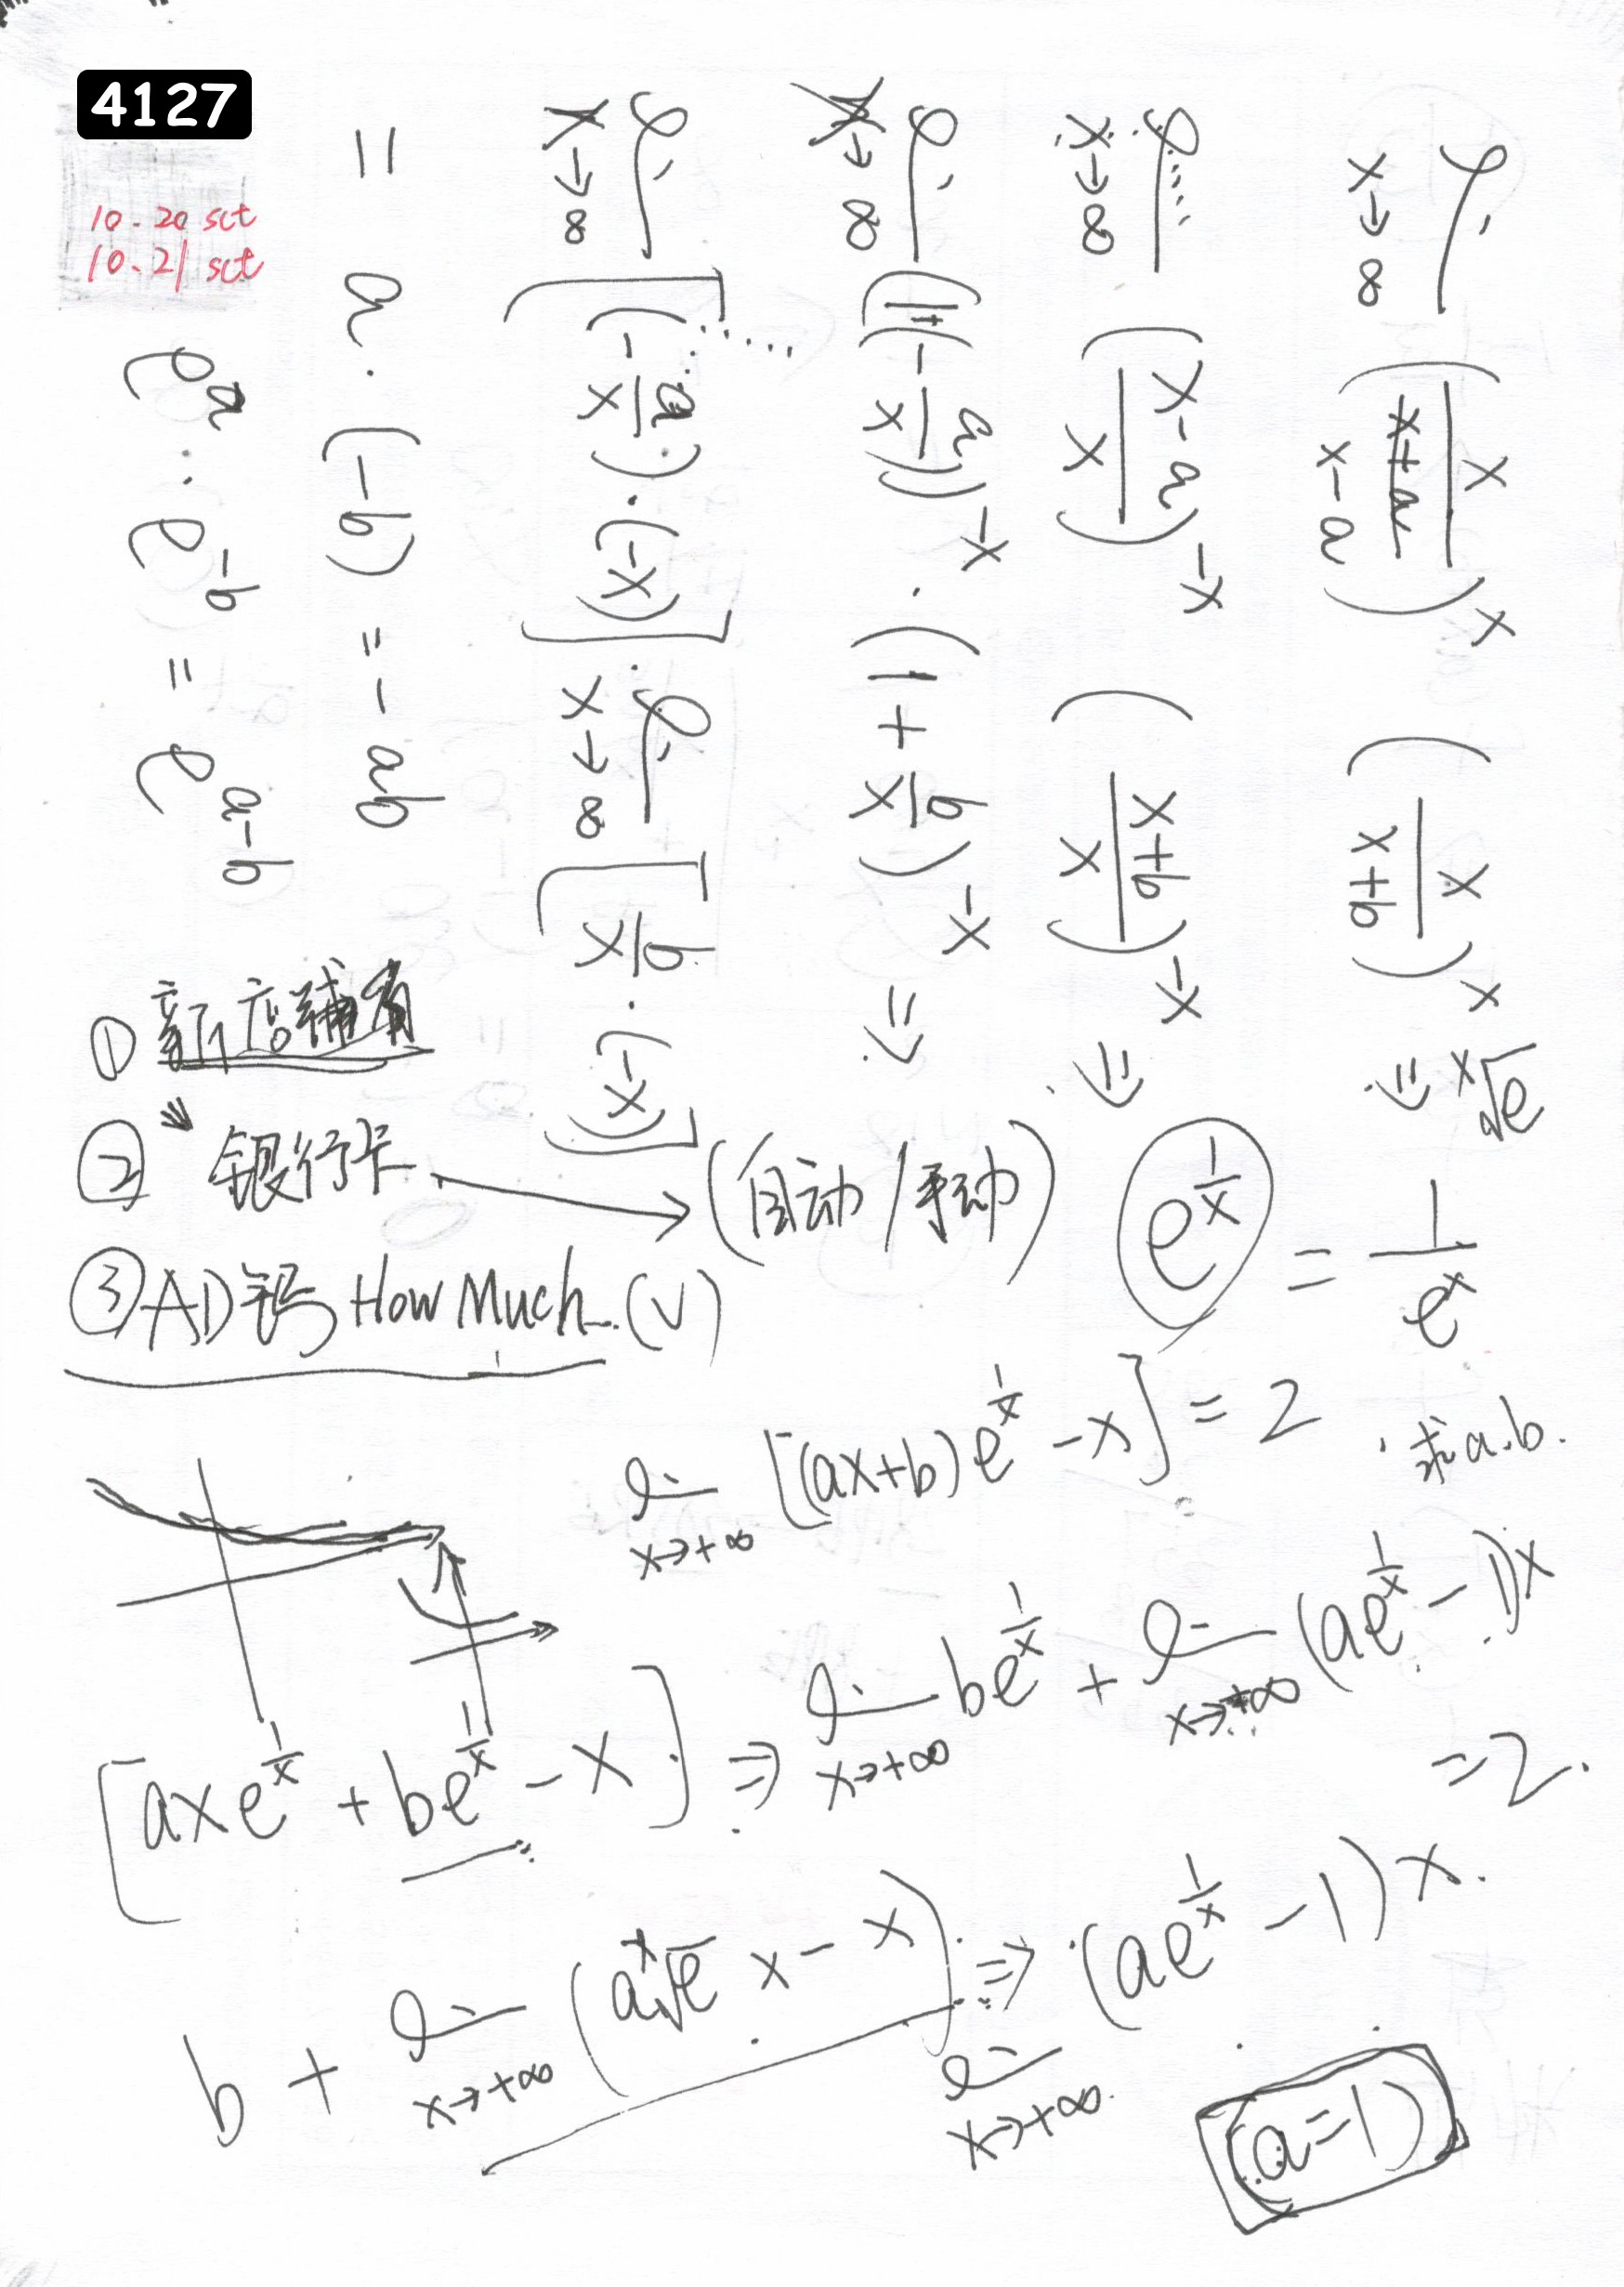 4127
10.20 sct
10.21 sct
lim x→∞ (x/(x-a))^x (x/(x+b))^x ⇒
lim x→∞ ((x-a)/x)^-x ((x+b)/x)^-x ⇒
lim x→∞ (1+(-a/x))^-x · (1+b/x)^-x ⇒
lim x→∞ [(-a/x)·(-x)] · lim x→∞ [b/x·(-x)]
= a·(-b) = -ab
e^a · e^-b = e^(a-b)
① 新店铺有
② 银行卡 → (自动/手动)
③ AD钙 How Much (√)
x√e
e^(1/x) = 1/e^x
lim x→+∞ [(ax+b)e^(1/x) -x] = 2 求a.b.
[axe^(1/x) + be^(1/x) - x] ⇒ lim x→+∞ be^(1/x) + lim x→+∞ (ae^(1/x) -1)x
=2.
b + lim x→+∞ (a x√e x - x) ⇒ lim x→+∞ (ae^(1/x) -1)x.
(a=1)